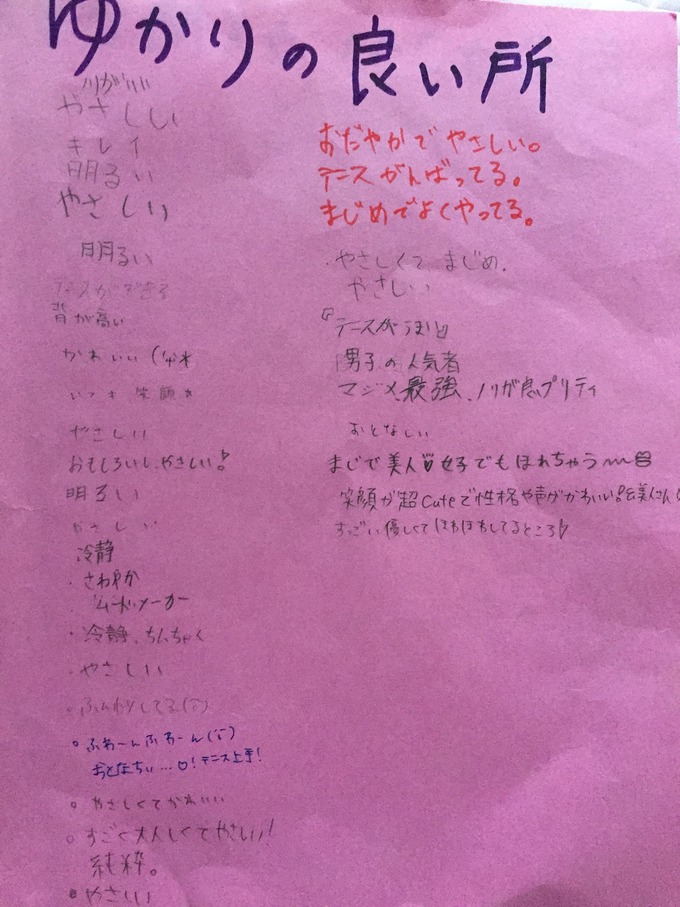 ゆかりの良い所
ノリがいい
やさしい
キレイ
明るい
やさしい
明るい
テニスができる
背が高い
かわいい
いつも笑顔
やさしい
おもしろいし、やさしい!
明るい
やさしい
冷静
・さわやか
ムードメーカー
・冷静、ちんちゃく
・やさしい
してる
ふわーんふわーん
おとなちぃ…♡!テニス上手!
やさしくてかわいい
すごく大人しくてやさしい!
純粋。
やさしい
おだやかでやさしい。
テニスがんばってる。
まじめでよくやってる。
・やさしくてまじめ.
やさしい
テニスがうまい
男子の人気者
マジメ、最強、ノリが良いプリティ
おとなしい
まじで美人♡女子でもほれちゃう
笑顔が超Cuteで性格や声がかわいい!
すっごい優しくてほわほわしてるところ♪